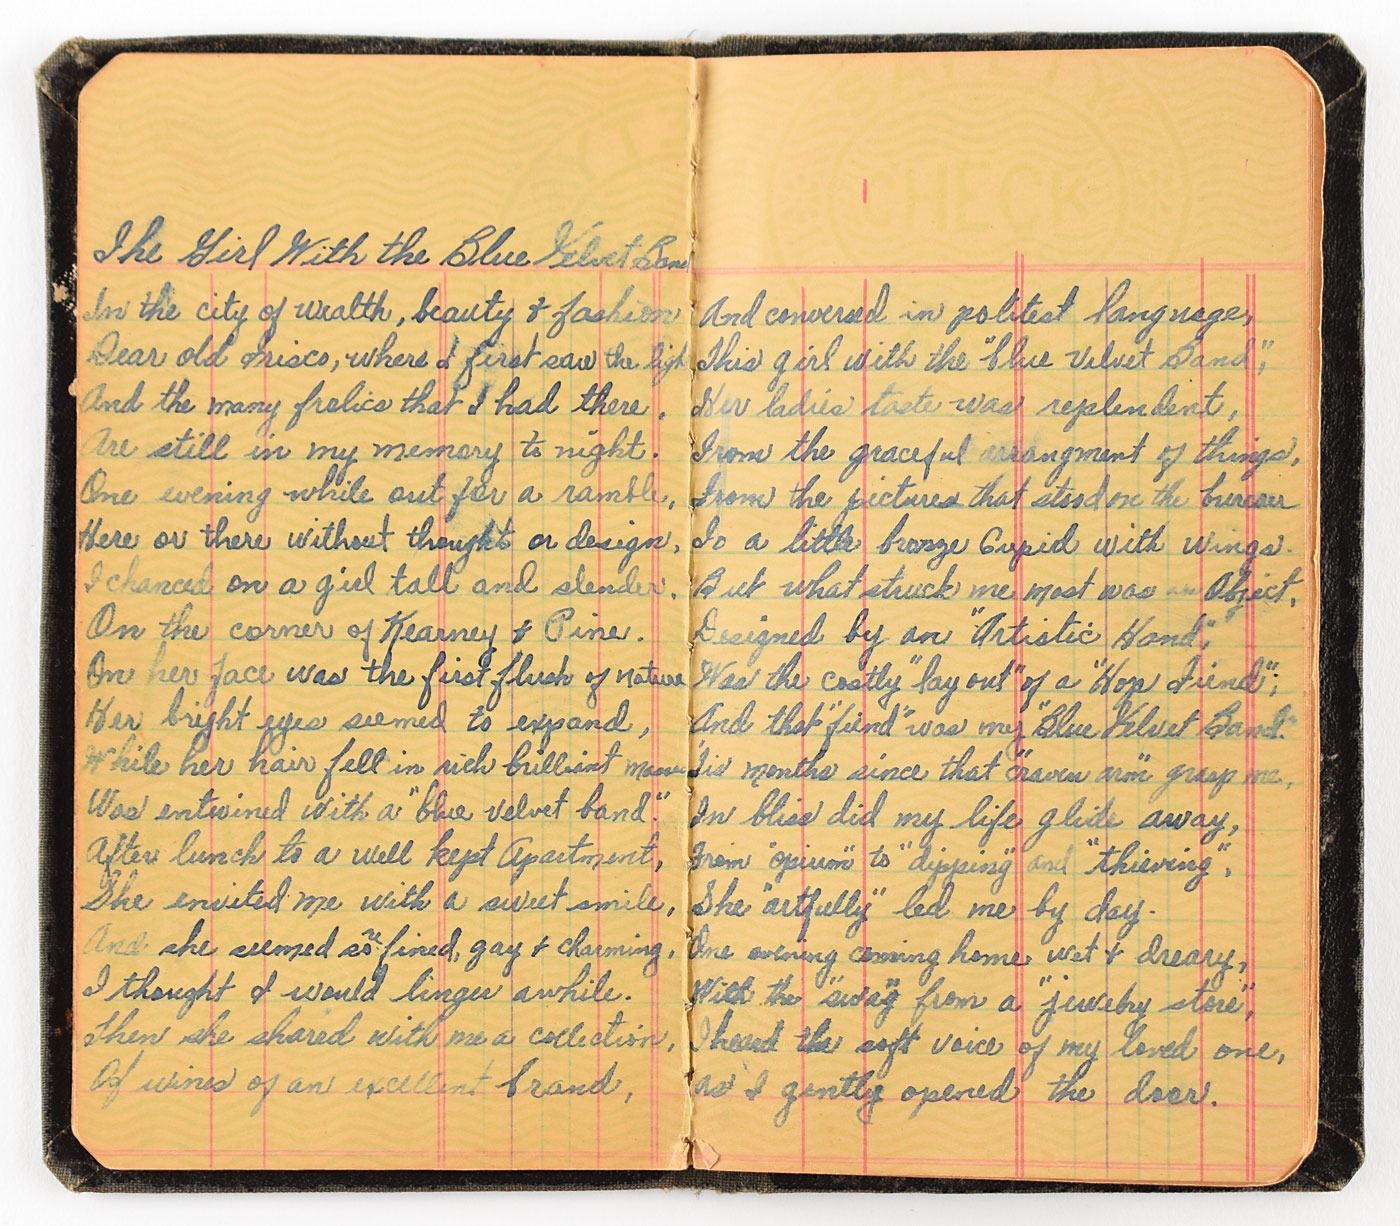 The Girl With the Blue Velvet Band
In the city of wealth, beauty & fashion
Dear old Frisco, where I first saw the ligh
And the many frolics that I had there,
Are still in my memory to night.
One evening while out for a ramble,
Here or there without thought or design,
I chanced on a girl tall and slender,
On the corner of Kearney & Pine.
On her face was the first flush of nature
Her bright eyes seemed to expand,
While her hair fell in rich brilliant
Was entwined with a "blue velvet band".
After lunch to a well kept Apartment,
She envited me with a sweet smile,
And she seemed so refined, gay & charming,
I thought I would linger awhile.
Then she shared with me a collection,
Of wines of an excellent brand,
SAFETY
CHECK
And conversed in politest language,
This girl with the "blue velvet Band";
Her ladies taste was replendent,
From the graceful arrangment of things,
From the pictures that stood on the bureau
To a little bronze Cupid with wings.
But what struck me most was an Object,
Designed by an "Artistic Hand";
Was the costly "lay out" of a "Hop Fiend";
And that "fiend" was my "Blue Velvet Band."
'Tis months since that "craven arm" grasp me,
In bliss did my life glide away,
From "opium" to "dipping" and "thieving",
She "artfully" led me by day.
One evening coming home wet & dreary,
With the "swag" from a "jewelry store",
I heard the soft voice of my loved one,
As I gently opened the door.